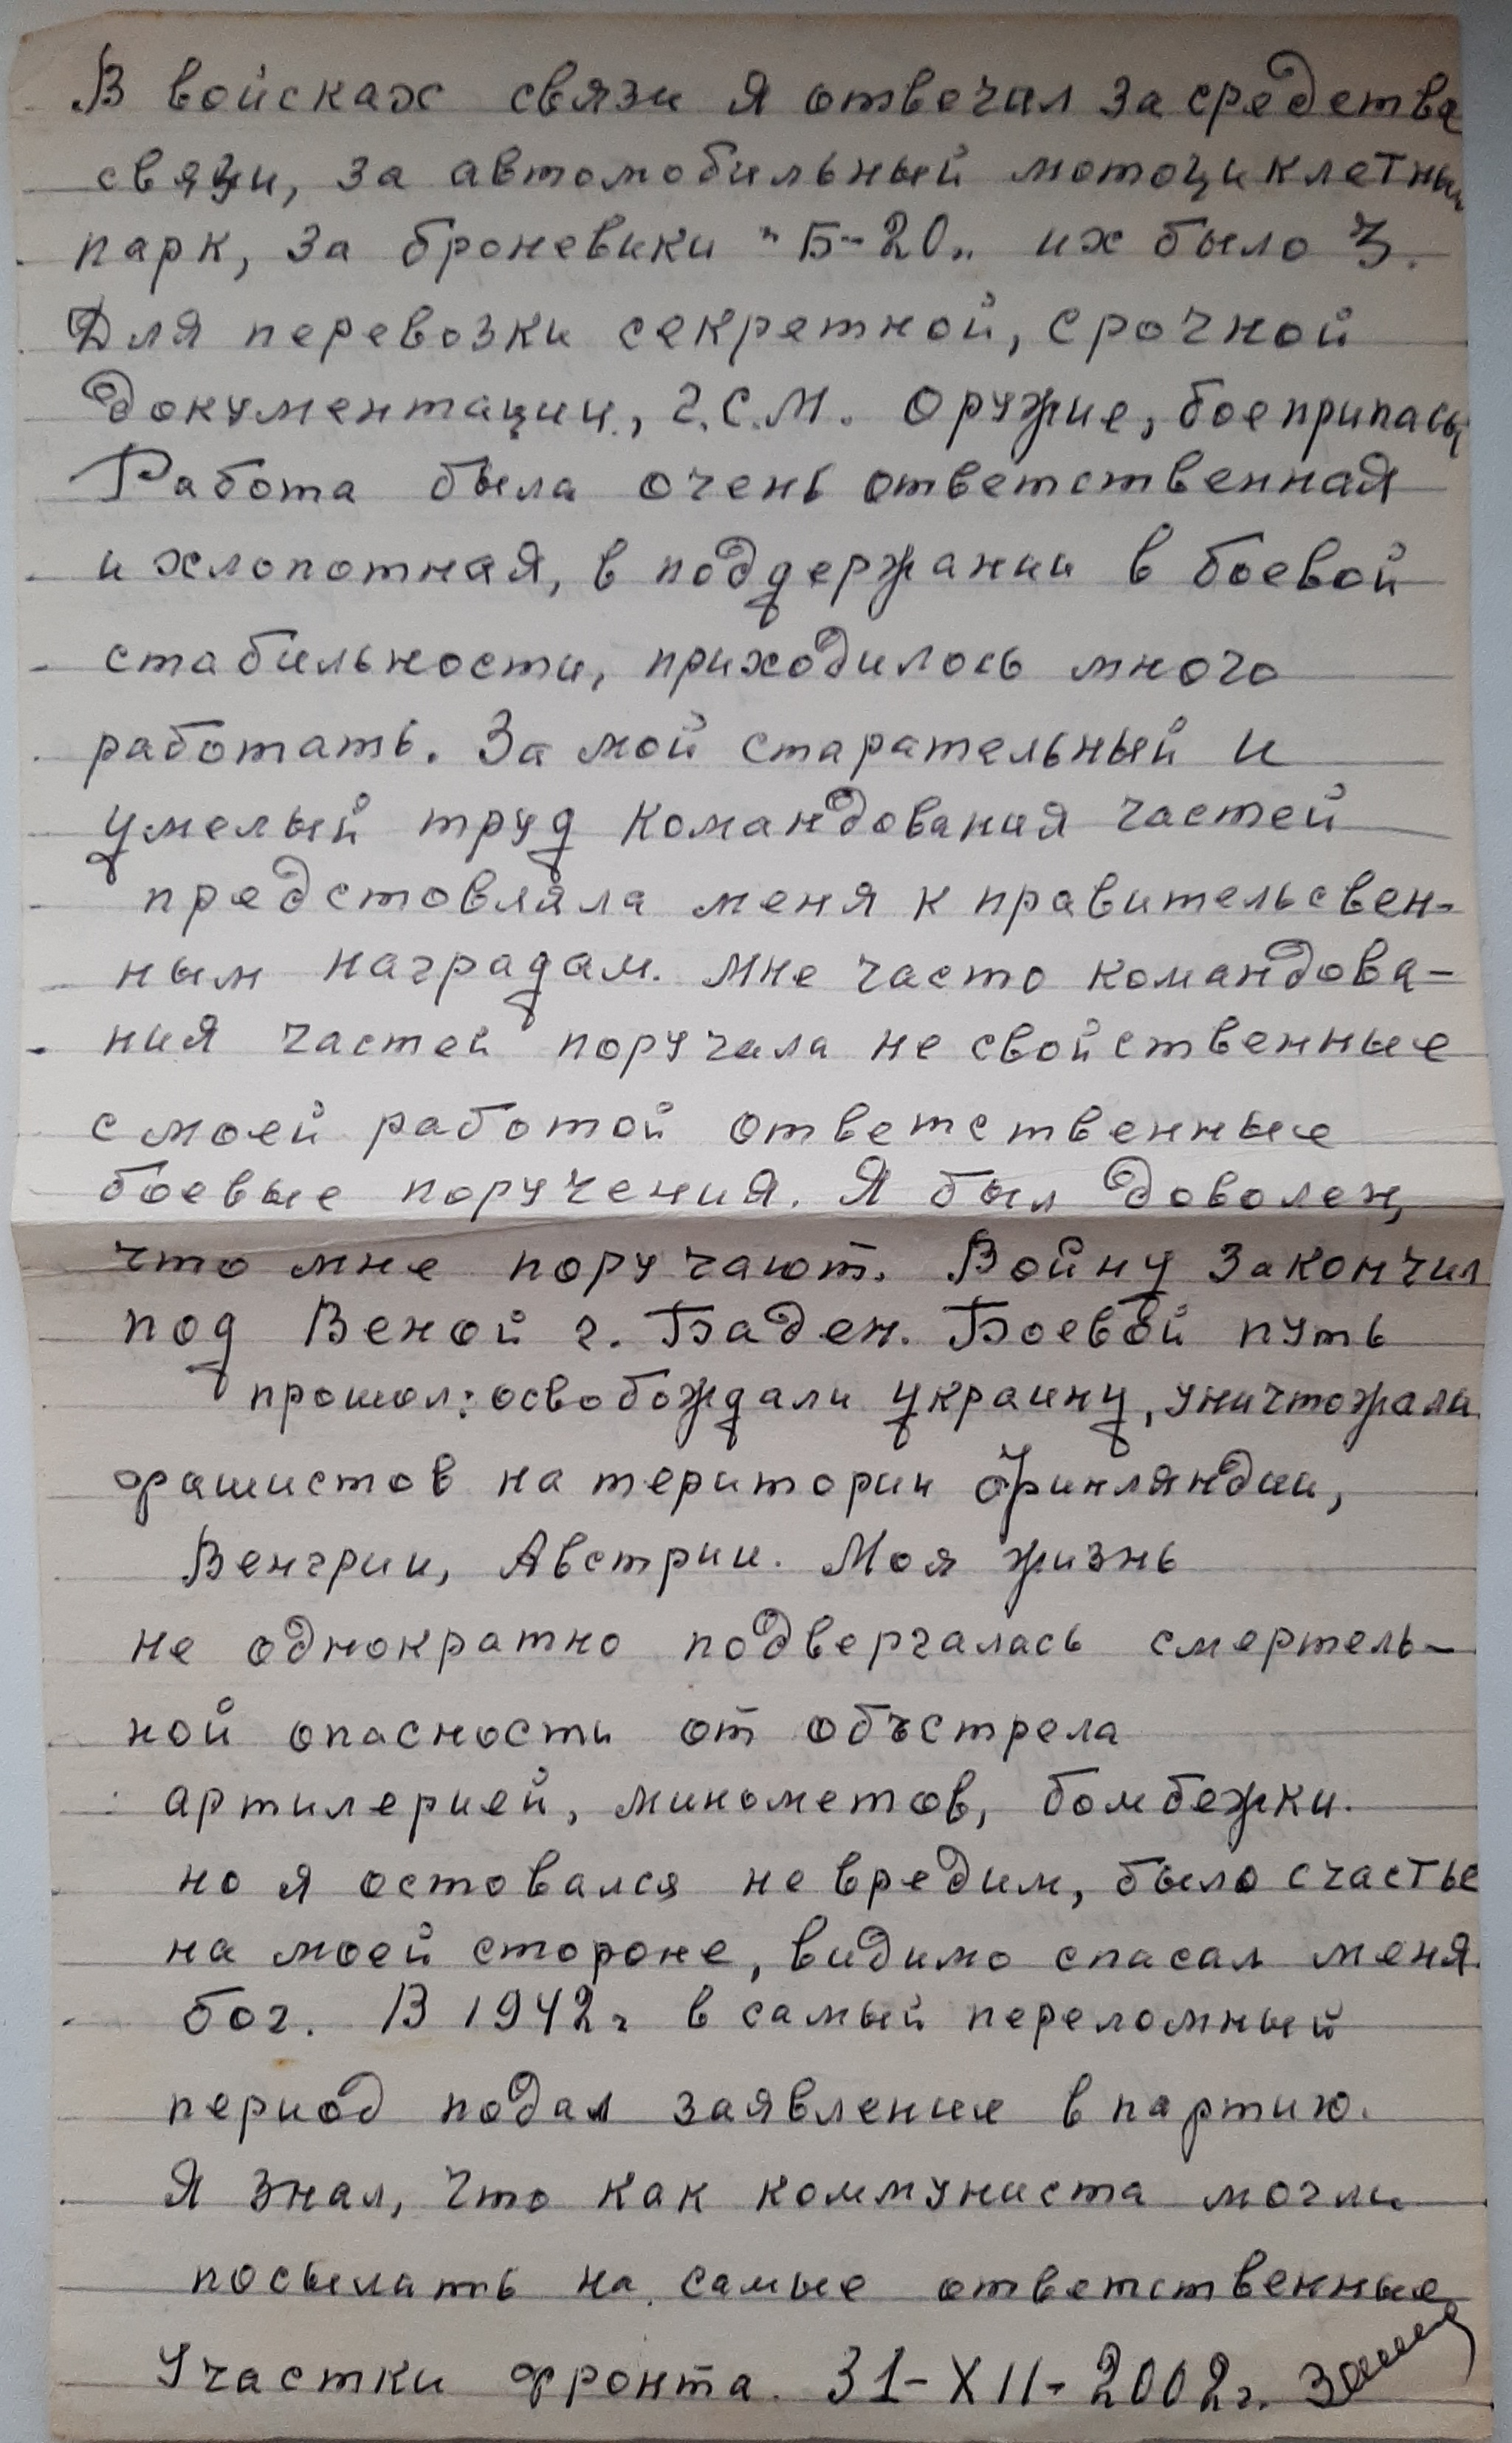 В войсках связи я отвечал за средства
связи, за автомобильный мотоциклетный
парк, за броневики "Б-20" их было 3.
Для перевозки секретной, срочной
документации, г.с.м. оружие, боеприпасы
Работа была очень ответственная
и хлопотная, в поддержании в боевой
стабильности, приходилось много
работать. За мой старательный и
умелый труд командования частей
предстовляла меня к правительсвен-
ным наградам. мне часто командова-
ния частей поручала не свойственные
с моей работой ответственные
боевые поручения. Я был доволен,
что мне поручают. Войну закончил
под Веной г. Баден. Боевой путь
прошол: освобождали украину, уничтожали
фашистов на територии Финляндии,
Венгрии, Австрии. Моя жизнь
не однократно подвергалась смертель-
ной опасности от обьстрела
артилерией, минометов, бомбежки.
но я остовался не вредим, было счастье
на моей стороне, видимо спасал меня
бог. В 1942г в самый переломный
период подал заявление в партию.
Я знал, что как коммуниста могли
посылать на самые ответственные
Участки фронта. 31-XII-2002г.